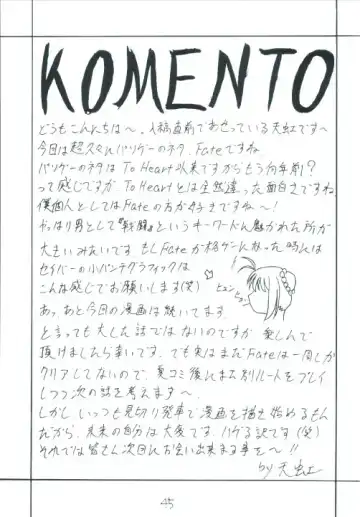 KOMENTO
どうもこんにちは〜、入稿直前であせっている天虹です〜
今回は超久々にパソゲーのネタ、Fateですね
パソゲーのネタは To Heart以来ですからもう何年前?
って感じですが To Heartとは全然違った面白さですね
僕個人としてはFateの方が好きですね〜!
やっぱり男として『戦闘』というキーワードに魅かれた所が
大きいみたいです もしFateが格ゲーになった時には
セイバーの小パンチグラフィックは
こんな感じでお願いします(笑)
ヒュン ヒュン
あっ、あと今回の漫画は続いてます。
と言っても大した話ではないのですが 楽しんで
頂けましたら幸いです、でも実はまだFateは一回しか
クリアしてないので、夏コミ後にまた別ルートをプレイ
しつつ次の話を考えます〜
しかし いっつも見切り発車で漫画を描き始めるもん
だから、未来の自分は大変です、ハゲる訳です(笑)
それでは皆さん次回にお会い出来ます事を〜!!
by 天虹
45